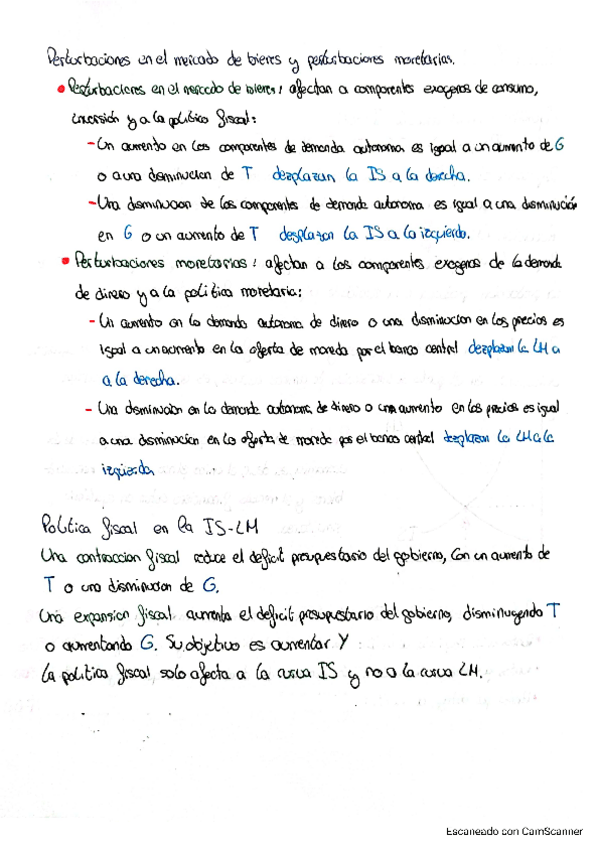 Perturbaciones en el mercado de bienes y perturbaciones monetarias.
• Perturbaciones en el mercado de bienes: afectan a componentes exogenos de consumo,
inversión y a la politica fiscal:
- Un aumento en los componentes de demanda autonoma es igual a un aumento de G
o a una disminucion de T desplazan la IS a la derecha.
- Una disminucion de los componentes de demanda autonoma es igual a una disminución
en G o un aumento de T desplazan la IS a la izquierda.
• Perturbaciones monetarias: afectan a los componentes exogenos de la demanda
de dinero y a la politica monetaria:
- Un aumento en la demanda autonoma de dinero o una disminucion en los precios es
igual a un aumento en la oferta de moneda por el banco central desplazan la LM a
a la derecha.
- Una disminución en la demanda autonoma de dinero o un aumento en los precios es igual
a una disminucion en la oferta de moneda por el banco central desplazan la LM a la
izquierda
Politica fiscal en la IS-LM
Una contraccion fiscal reduce el deficit presupuestario del gobierno, con un aumento de
T o una disminucion de G.
Una expansion fiscal aumenta el deficit presupuestario del gobierno, disminuyendo T
o aumentando G. Su objetivo es aumentar Y
La politica fiscal solo afecta a la curva IS y no a la curva LM.
Escaneado con CamScanner